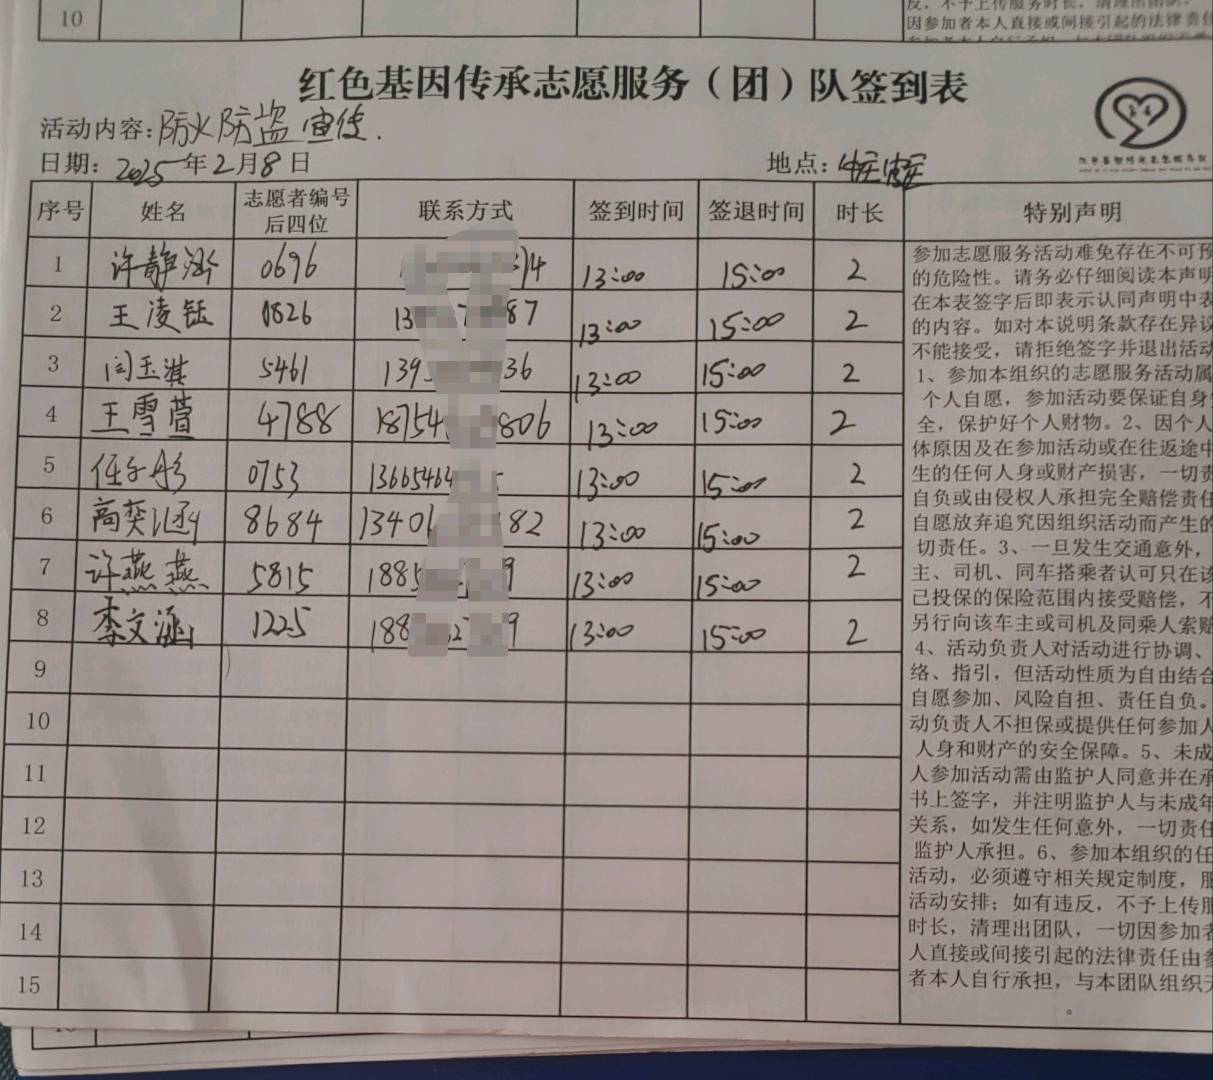 10
反，不予上传服务时长，清理出团队，
因参加者本人直接或间接引起的法律责任
红色基因传承志愿服务（团）队签到表
活动内容：防火防盗宣传.
日期：2025年2月8日
地点：
序号 姓名 志愿者编号后四位 联系方式 签到时间 签退时间 时长 特别声明
1 许静涵 0696 14 13:00 15:00 2
2 王凌钰 0826 13 87 13:00 15:00 2
3 闫玉淇 5461 139 36 13:00 15:00 2
4 王雪萱 4788 18754 806 13:00 15:00 2
5 任子彤 0753 13665464 13:00 15:00 2
6 高奕涵 8684 1340 82 13:00 15:00 2
7 许燕燕 5815 188 9 13:00 15:00 2
8 李文涵 1225 188 2 9 13:00 15:00 2
9
10
11
12
13
14
15
参加志愿服务活动难免存在不可预
的危险性。请务必仔细阅读本声明
在本表签字后即表示认同声明中表
的内容。如对本说明条款存在异议
不能接受，请拒绝签字并退出活动
1、参加本组织的志愿服务活动属
个人自愿，参加活动要保证自身安
全，保护好个人财物。2、因个人
体原因及在参加活动或在往返途中
生的任何人身或财产损害，一切责
自负或由侵权人承担完全赔偿责任
自愿放弃追究因组织活动而产生的
切责任。3、一旦发生交通意外，
主、司机、同车搭乘者认可只在该
己投保的保险范围内接受赔偿，不
另行向该车主或司机及同乘人索赔
4、活动负责人对活动进行协调、
络、指引，但活动性质为自由结合
自愿参加、风险自担、责任自负。
动负责人不担保或提供任何参加人
人身和财产的安全保障。5、未成
人参加活动需由监护人同意并在承
书上签字，并注明监护人与未成年
关系，如发生任何意外，一切责任
监护人承担。6、参加本组织的任
活动，必须遵守相关规定制度，服
活动安排；如有违反，不予上传服
时长，清理出团队，一切因参加者
人直接或间接引起的法律责任由参
者本人自行承担，与本团队组织无
。